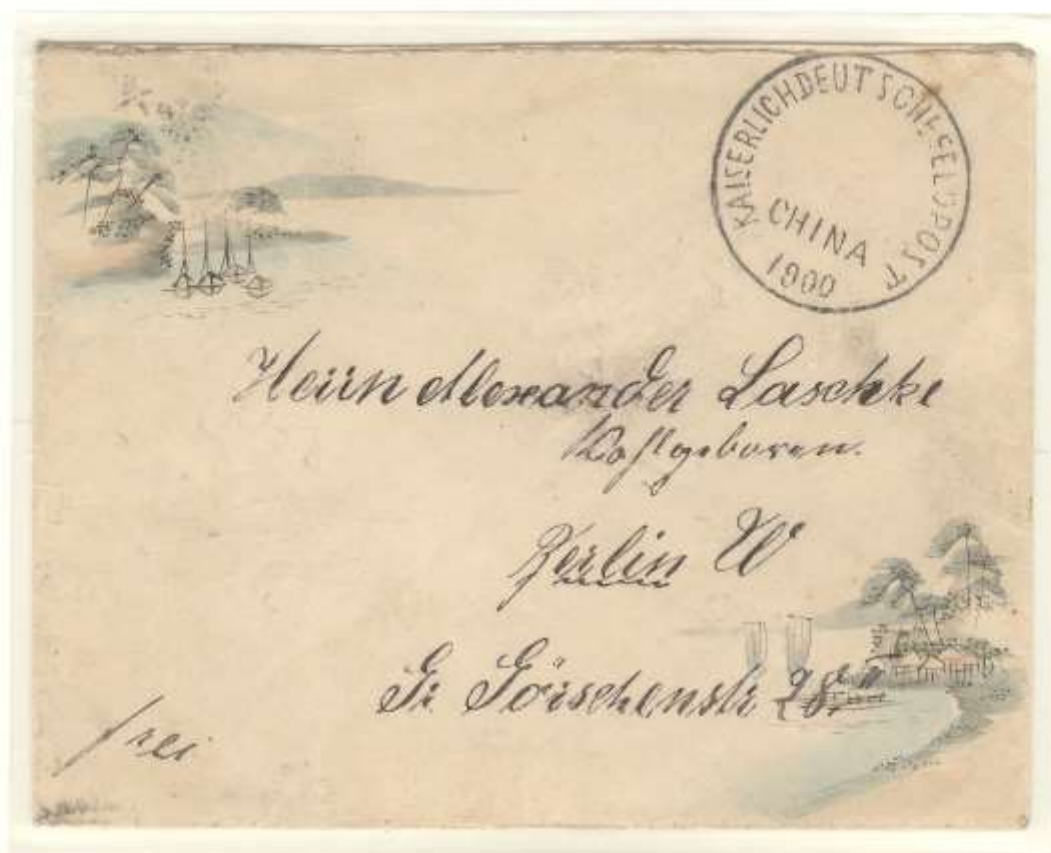 KAISERLICH DEUTSCHE FELDPOST
CHINA
1900
Herrn Alexander Laschke
Wohlgeboren.
Berlin W
Gr Görschenstr 28.
frei